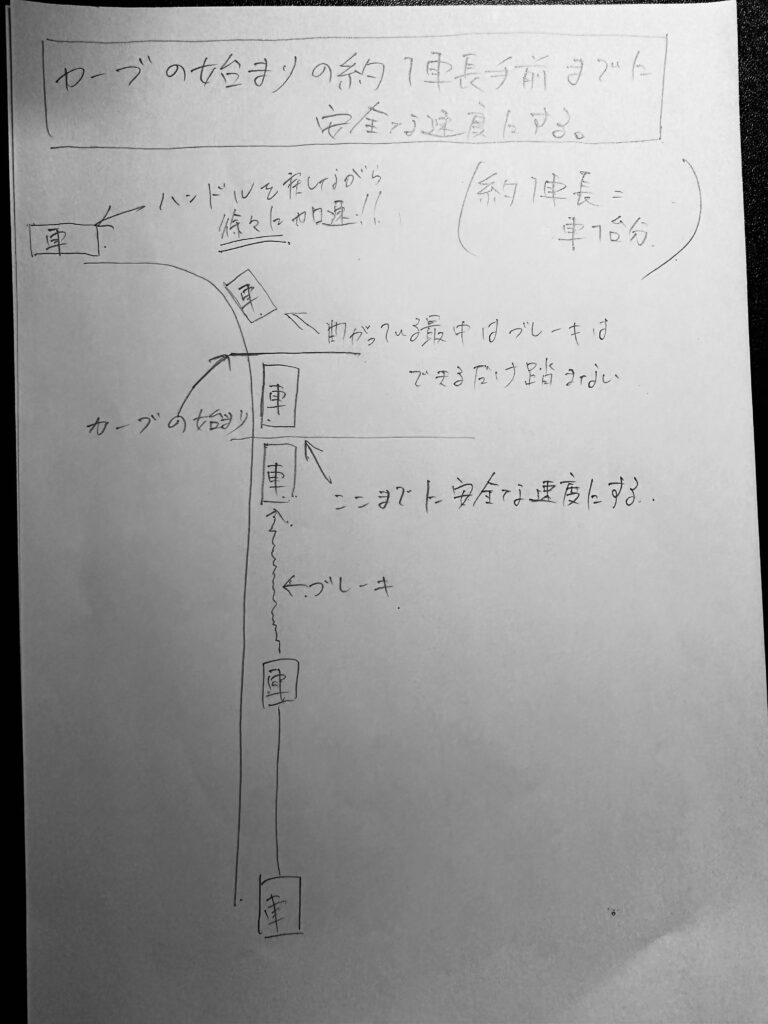 カーブの始まりの約1車長手前までに
安全な速度にする。
(約1車長=
車1台分)
ハンドルを戻しながら
徐々に加速!!
車
車
曲がっている最中はブレーキは
できるだけ踏まない
車
カーブの始まり
車
ここまでに安全な速度にする。
ブレーキ
車
車